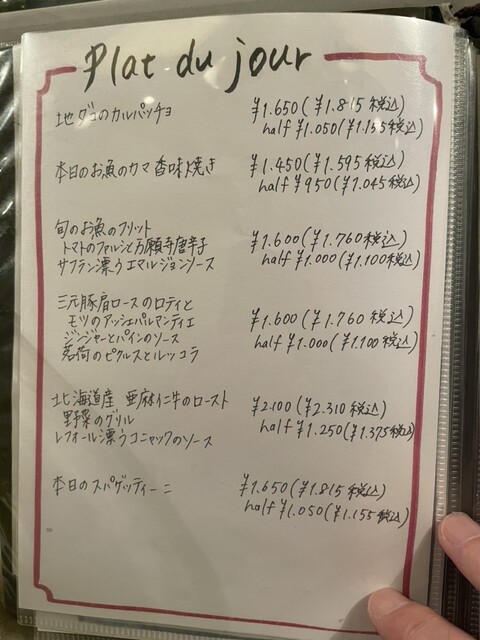 Plat du jour
地ダコのカルパッチョ ¥1.650(¥1.815税込)
half ¥1.050(¥1.155税込)
本日のお魚のカマ 香味焼き ¥1.450(¥1.595税込)
half ¥950(¥1.045税込)
旬のお魚のフリット
トマトのファルシと万願寺唐辛子 ¥1.600(¥1.760税込)
サフラン漂うエマルジョンソース half ¥1.000(¥1.100税込)
三元豚肩ロースのロティと
モツのアッシェパルマンティエ ¥1.600(¥1.760税込)
ジンジャーとパインのソース half ¥1.000(¥1.100税込)
茗荷のピクルスとルッコラ
北海道産 亜麻仁牛のロースト ¥2.100(¥2.310税込)
野菜のグリル half ¥1.250(¥1.375税込)
レフォール漂うコニャックのソース
本日のスパゲッティーニ ¥1.650(¥1.815税込)
half ¥1.050(¥1.155税込)